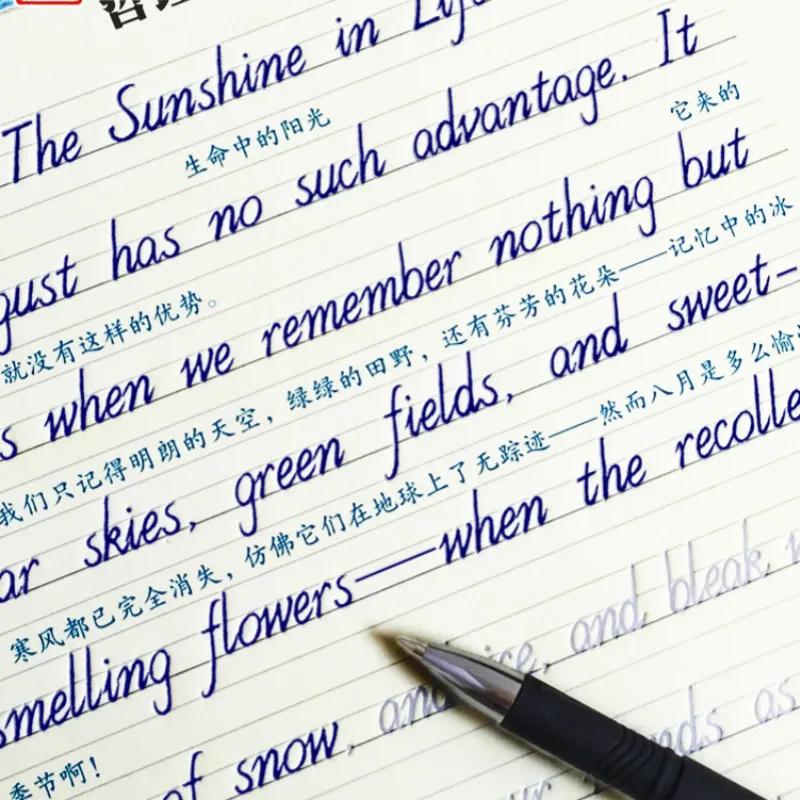 The Sunshine in Life
生命中的阳光
gust has no such advantage. It
就没有这样的优势。 它来的
s when we remember nothing but
我们只记得明朗的天空，绿绿的田野，还有芬芳的花朵——记忆中的冰
ar skies, green fields, and sweet-
寒风都已完全消失，仿佛它们在地球上了无踪迹——然而八月是多么愉
smelling flowers—when the recolle
季节啊！
of snow, and ice, and bleak w
as